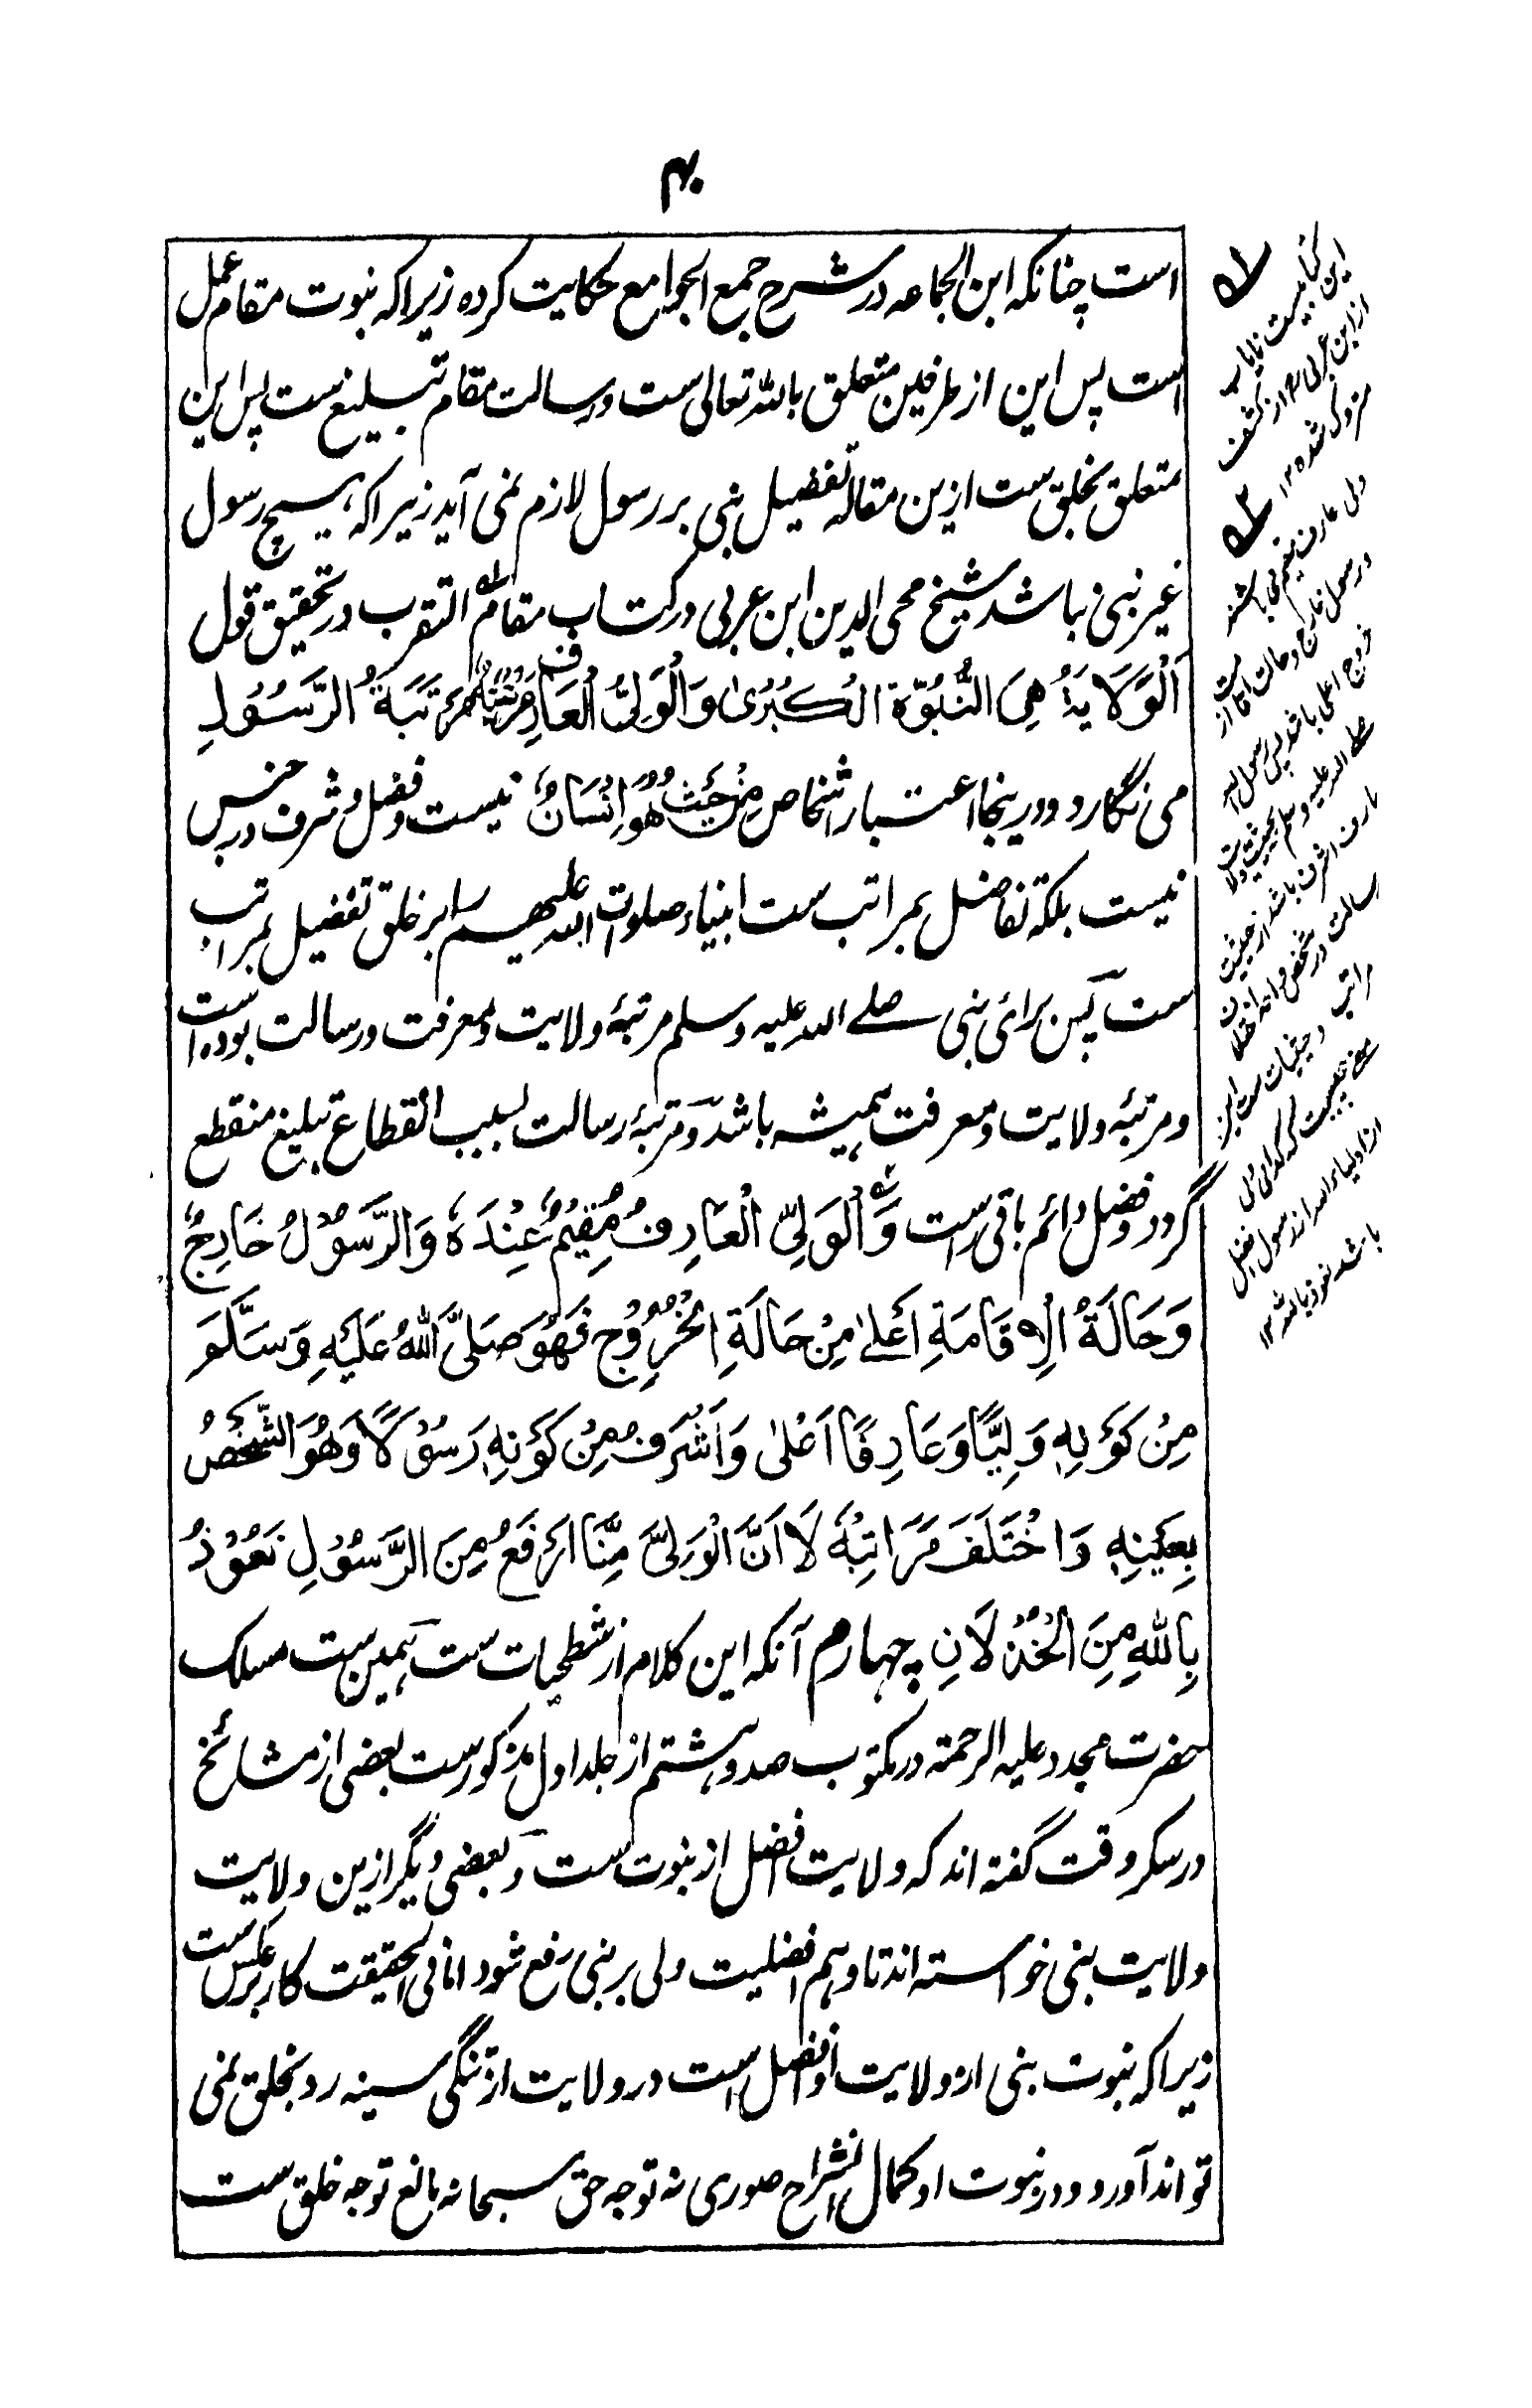 ۴
است چنانکه ابن الجماعه در شرح جمع الجوامع حکایت کرده زیرا که نبوت مقام عمل
است پس این از طرفین متعلق بالله تعالی ست و رسالت مقام تبلیغ ست پس این
متعلق بخلق ست ازین مقاله تفضیل نبی بر رسول لازم نمی آید زیرا که هیچ رسول
غیر نبی نباشد شیخ محی الدین ابن عربی در کتاب مقام التقرب در تحقیق قول
اَلْوَلَايَةُ هِيَ النُّبُوَّةُ الْكُبْرٰى وَالْوَلِيُّ الْعَارِفُ مَرْتَبَتُهُ مَرْتَبَةُ الرَّسُوْلِ
می نگارد و درینجا اعتبار اشخاص مِنْ حَيْثُ هُوَ اِنْسَانٌ نیست و فضل و شرف در جنس
نیست بلکه تفاضل بمراتب ست انبیاء صلوات الله علیهم را بر خلق تفضیل بمراتب
ست پس برائ نبی صلے الله علیه وسلم مرتبهٔ ولایت و معرفت و رسالت بوده است
و مرتبهٔ ولایت و معرفت همیشه باشد و مرتبهٔ رسالت بسبب انقطاع تبلیغ منقطع
گردد و فضل دائم باقی راست وَالْوَلِيُّ الْعَارِفُ مُقِيْمٌ عِنْدَهٗ وَالرَّسُوْلُ خَارِجٌ
وَحَالَةُ الْاِقَامَةِ اَعْلٰى مِنْ حَالَةِ الْخُرُوْجِ فَهُوَ صَلَّى اللهُ عَلَيْهِ وَسَلَّمَ
مِنْ كَوْنِهٖ وَلِيًّا وَعَارِفًا اَعْلٰى وَاَشْرَفُ مِنْ كَوْنِهٖ رَسُوْلًا وَهُوَ الشَّخْصُ
بِعَيْنِهٖ وَاخْتَلَفَ مَرَاتِبُهٗ لَا اَنَّ الْوَلِيَّ مِنَّا اَرْفَعُ مِنَ الرَّسُوْلِ نَعُوْذُ
بِاللهِ مِنَ الْخُذْلَانِ چهارم آنکه این کلام از شطحیات ست همین ست مسلک
حضرت مجدد علیه الرحمة در مکتوب صد و هشتم از جلد اول مذکورست بعضی از مشائخ
در سکر وقت گفته اند که ولایت افضل از نبوت ست و بعضی دیگر ازین ولایت
ولایت نبی خواسته اند تا وهم افضلیت ولی بر نبی رفع شود اما فی الحقیقت کار برعکس ست
زیرا که نبوت نبی از ولایت او افضل است در ولایت از تنگی سینه رو بخلق نمی
تواند آورد و در نبوت او کمال انشراح صوری نه توجه حق سبحانه مانع توجه خلق ست
این کتابیست نایاب
از ابن عربی
ولی عارف مقیم می باشند
و رسول خارج و حالت اقامت از
خروج اعلی باشد پس رسول الله
صلے الله علیه وسلم بحیثیت ولایت
عارف اشرف باشد از حیثیت
رسالت در شخص واحد
مراتب و حیثیات ست
باشد نعوذ بالله ۱۲